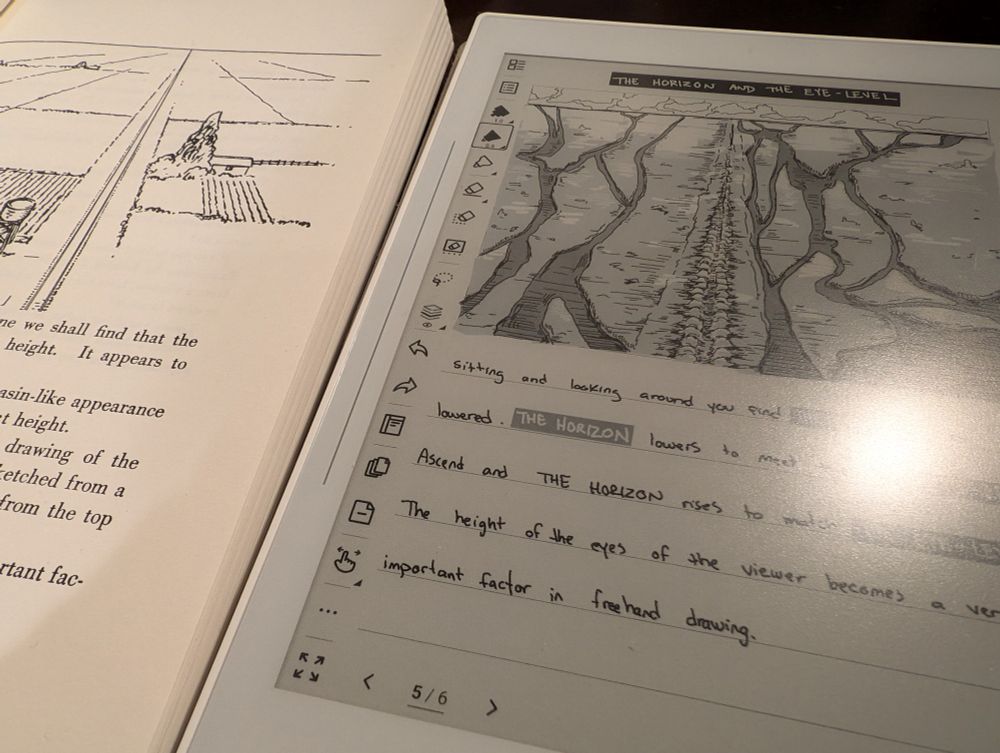 ne we shall find that the
height. It appears to
asin-like appearance
t height.
drawing of the
ketched from a
from the top
rtant fac-
THE HORIZON AND THE EYE-LEVEL
sitting and looking around you find
lowered. THE HORIZON lowers to meet
Ascend and THE HORIZON rises to match
The height of the eyes of the viewer becomes a ver
important factor in freehand drawing.
5/6